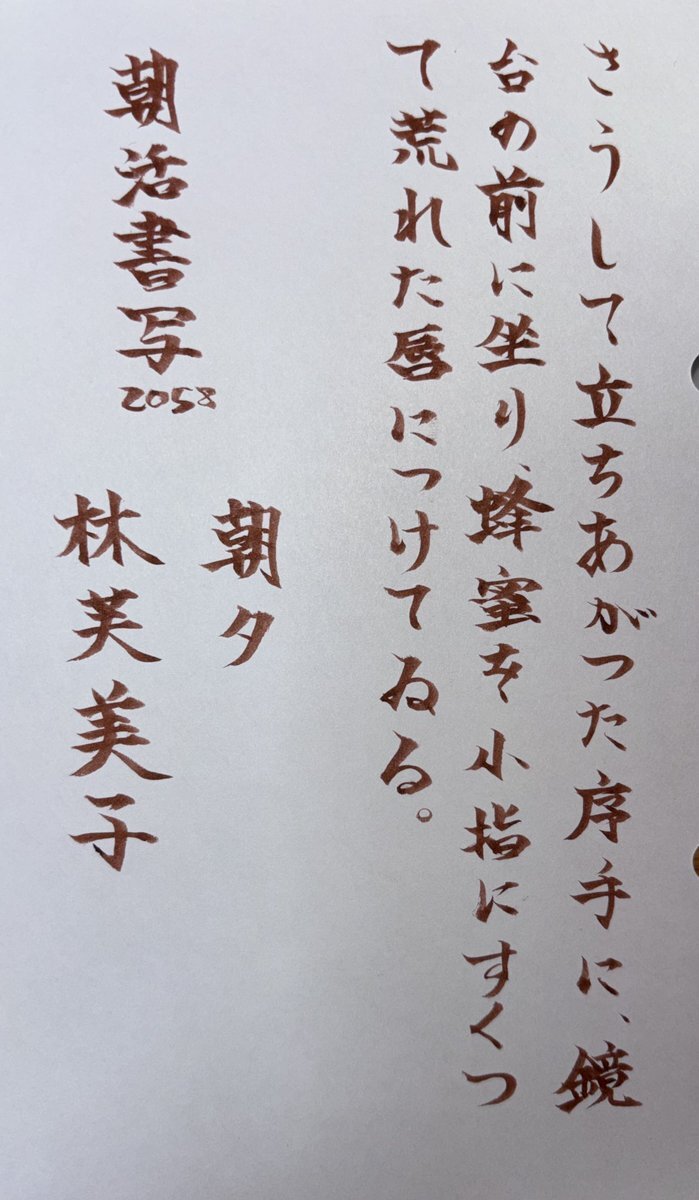 さうして立ちあがつた序手に、鏡
台の前に坐り、蜂蜜を小指にすくつ
て荒れた唇につけてゐる。
朝夕
朝活書写
2058
林芙美子